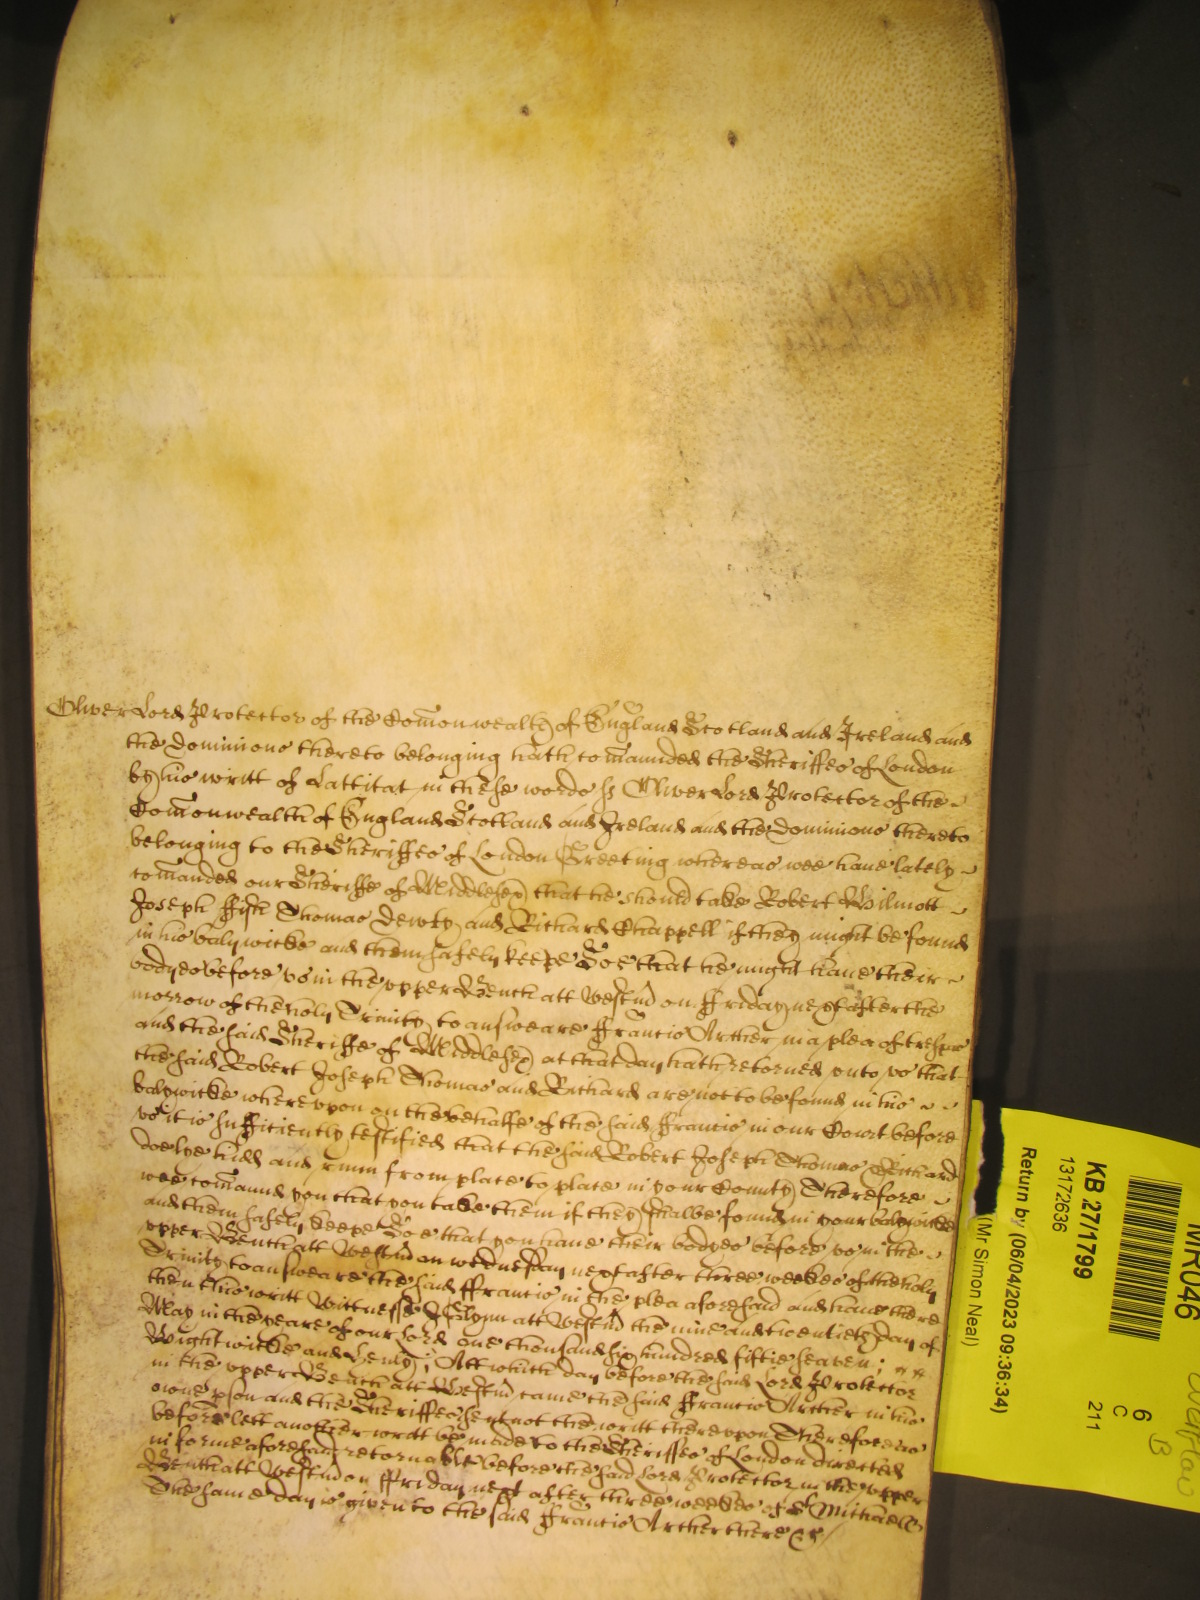 Oliver Lord Protector of the Com̄onwealth of England Scotland and Ireland and
the Dominions thereto belonging hath com̄aunded the Sheriffes of London
by his writt of Lattitat in these words ss Oliver Lord Protector of the
Com̄onwealth of England Scotland and Ireland and the Dominions thereto
belonging to the Sheriffes of London Greeting whereas wee have lately
com̄anded our Sheriffe of Middlesex that he should take Robert Wilmott
Joseph ffish Thomas Dewty and Richard Chappell if they might be found
in his balywicke and them safely keepe Soe that he might have their
bodyes before us in the upper Bench att Westm̄ on ffriday next after the
morrow of the holy Trinity to answeare ffrancis Arther in a plea of trespas
and the said Sheriffe of Middlesex at that day hath retorned unto us that
the said Robert Joseph Thomas and Richard are not to be found in his
balywicke whereupon on the behalfe of the said ffrancis in our Court before
us it is sufficiently testified that the said Robert Joseph Thomas Richard
doe lye hidd and runn from place to place in your County Therefore
wee com̄aund you that you take them if they shalbe found in your balywicke
and them safely keepe Soe that you have their bodyes before us in the
upper Bench att Westm̄ on wednesday next after three weekes of the holy
Trinity to answeare the said ffrancis in the plea aforesaid and have there
then this writt Wittnesse J Glynn att Westm̄ the nine and twentieth day of
May in the yeare of our Lord one thousand six hundred fiftie seaven
Wightwicke and Henly Att which day before the said Lord Protector
in the upper Bench att Westm̄ came the said ffrancis Arther in his
owne pson and the Sheriffes sent not the writt thereupon Therefore as
before lett another writt be made to the Sheriffes of London directed
in forme aforesaid retornable before the said Lord Protector in the upper
Bench att Westm̄ on ffriday next after three weekes of St Michaell
The same day is given to the said ffrancis Arther there &c
MR046
6
C
211
KB 27/1799
13172636
Return by (06/04/2023 09:36:34)
(Mr Simon Neal)